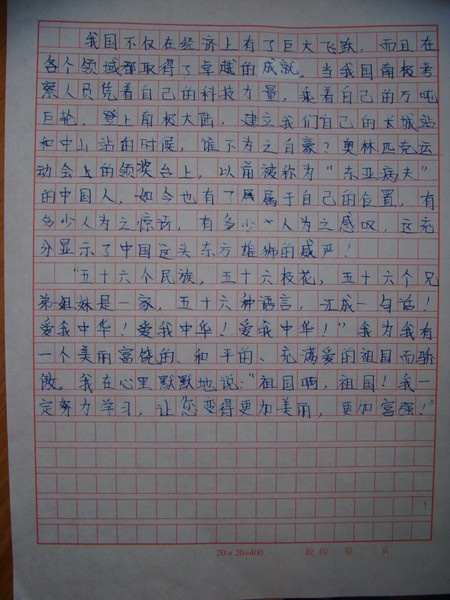 我国不仅在经济上有了巨大飞跃，而且在
各个领域都取得了卓越的成就。当我国南极考
察人员凭着自己的科技力量，乘着自己的万吨
巨轮，登上南极大陆，建立我们自己的长城站
和中山站的时候，谁不为之自豪？奥林匹克运
动会上的领奖台上，以前被称为“东亚病夫”
的中国人，如今也有了属于自己的位置，有
多少人为之惊讶，有多少人为之感叹，这充
分显示了中国这头东方雄狮的威严！
“五十六个民族，五十六枝花，五十六个兄
弟姐妹是一家，五十六种语言，汇成一句话！
爱我中华！爱我中华！爱我中华！”我为我有
一个美丽富饶的、和平的、充满爱的祖国而骄
傲。我在心里默默地说：“祖国啊，祖国！我一
定努力学习，让您变得更加美丽，更加富强！”
20×20=400